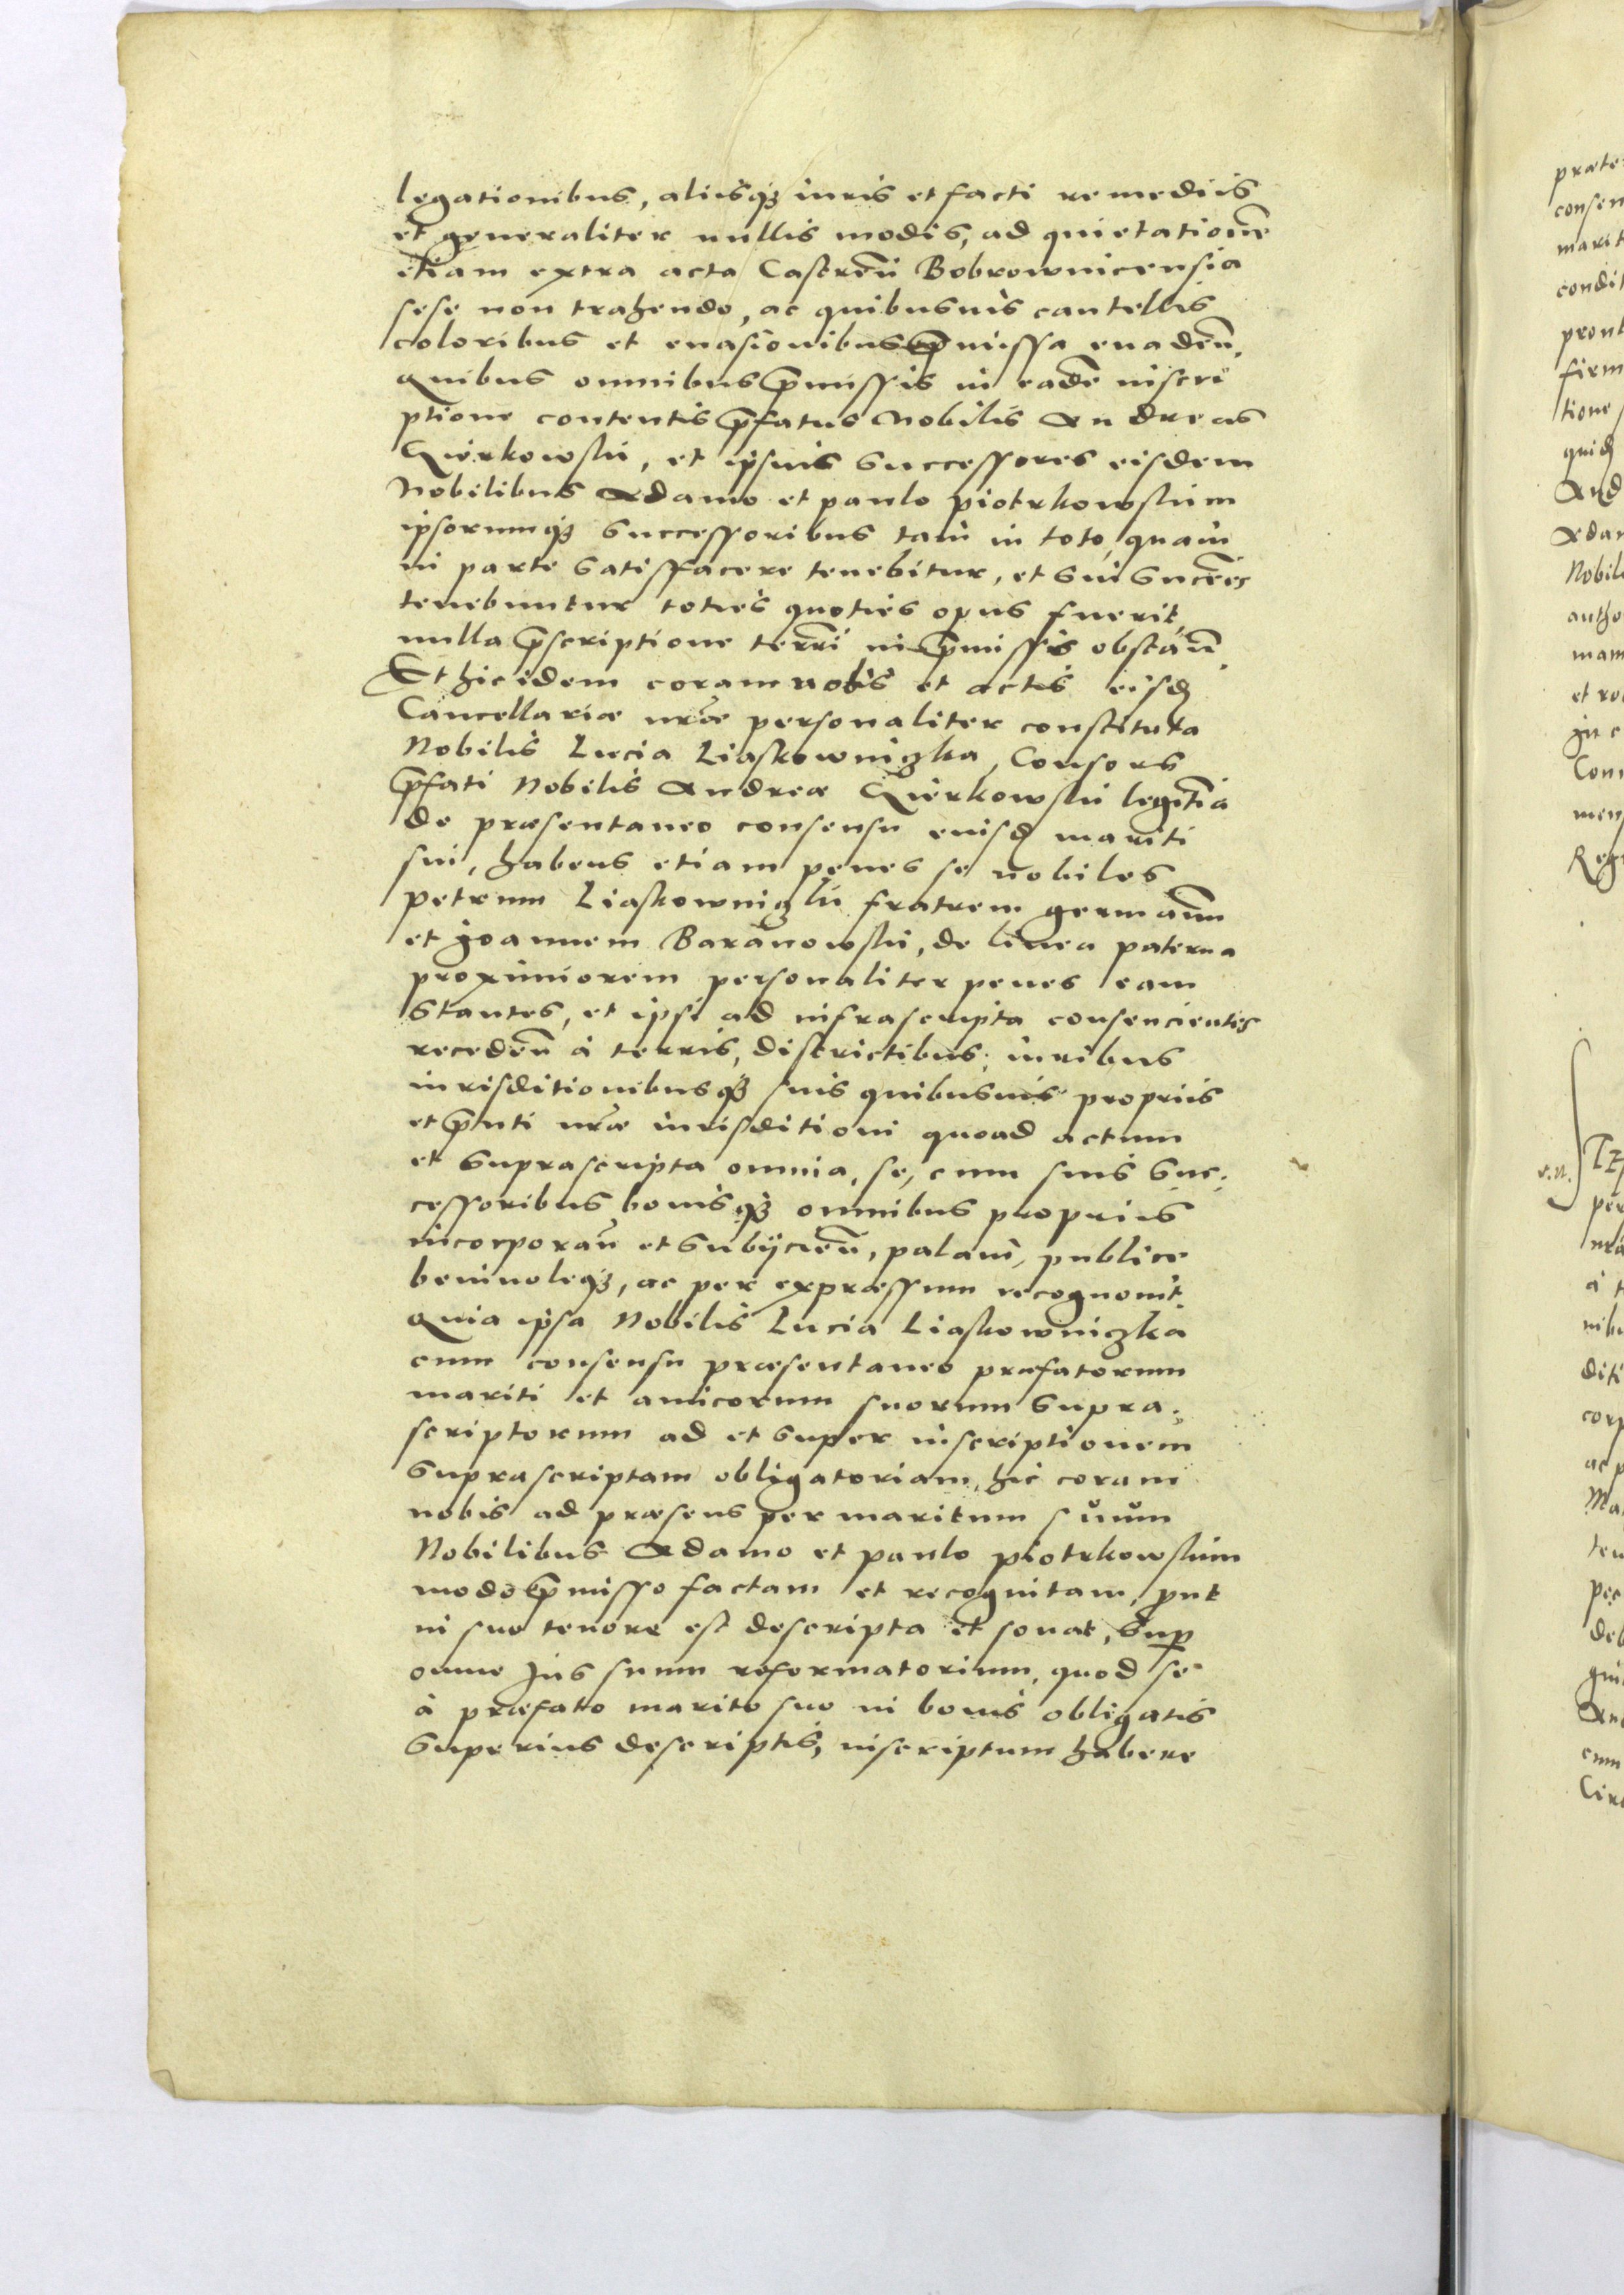 legationibus, alijsq₃ iuris et facti remedijs
et generaliter nullis modis, ad quietationē
etiam extra acta Castreñ Bobrownicensia
sese non trahendo, ac quibusuis cautellis
coloribus et euasionibus p̄missa euadeñ.
Quibus omnibus p̄missis in eadē inscri
ptione contentis p̄fatus Nobilis Andreas
Kierkowski, et ipsius successores eisdem
Nobilibus Adamo et Paulo Piotrkowskim
ipsorumq₃ successoribus tam in toto, quam
in parte satisfacere tenebitur, et sui succēēs
tenebuntur toties quoties opus fuerit,
nulla p̄scriptione terrī in p̄missis obstañ.
Et hic idem coram nobis et actis eisd
Cancellariæ nr̄æ personaliter constituta
Nobilis Lucia Liaskowniczka, Consors
p̄fati Nobilis Andreæ Kierkowski legitīa
de præsentaneo consensu eiusd mariti
sui, habens etiam penes se nobiles
Petrum Liaskownizki fratrem germanū
et Joannem Baranowski, de linea paterna
proximiorem personaliter penes eam
stantes, et ipsi ad infrascripta consencientes
recedeñ à terris, districtibus, iuribus
iurisditionibusq₃ suis quibusuis proprijs
et p̄nti nr̄æ iurisditioni quoad actum
et suprascripta omnia, se, cum suis suc,
cessoribus bonisq₃ omnibus proprijs
incorporañ et subijcieñ, palam, publice
beniuoleq₃, ac per expræssum recognouit.
Quia ipsa Nobilis Lucia Liaskowniczka
cum consensu præsentaneo præfatorum
mariti et amicorum suorum supra,
scriptorum ad et super inscriptionem
suprascriptam obligatoriam, hic coram
nobis ad præsens per maritum suum
Nobilibus Adamo et Paulo Piotrkowskim
modo p̄misso factam et recognitam, put
in suo tenore est descripta et sonat, sup
omne Jus suum reformatorium, quod se
à præfato marito suo in bonis obligatis
superius descriptis, inscriptum habere